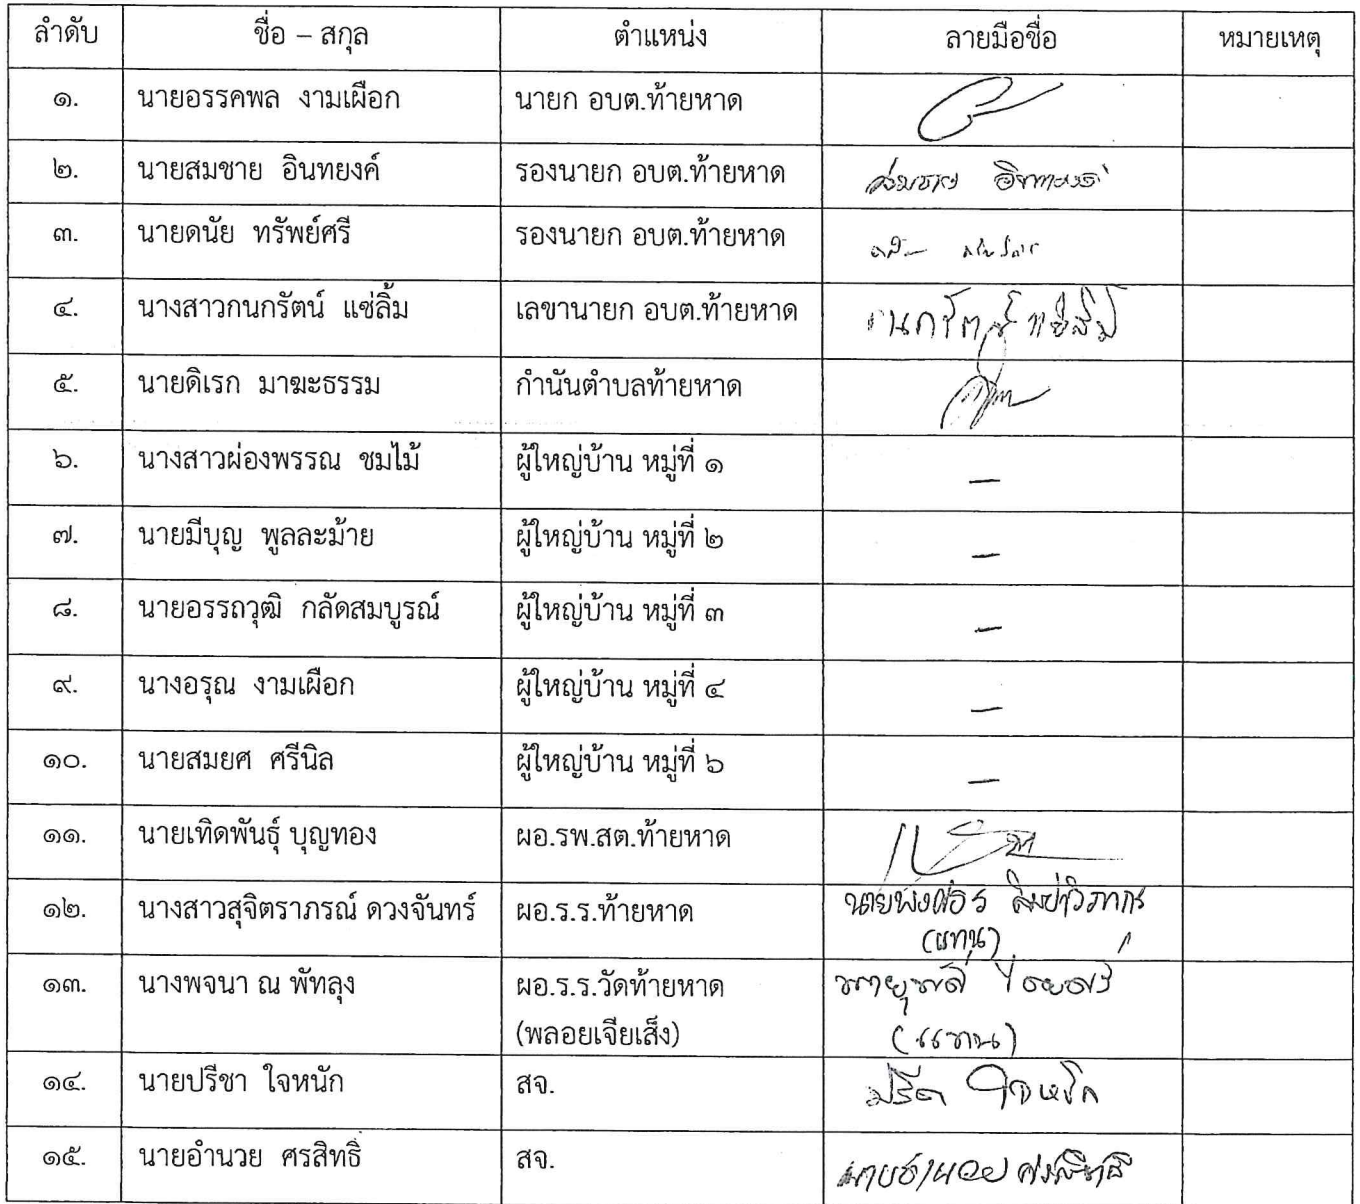 ลำดับ ชื่อ – สกุล ตำแหน่ง ลายมือชื่อ หมายเหตุ
๑. นายอรรคพล งามเผือก นายก อบต.ท้ายหาด
๒. นายสมชาย อินทยงค์ รองนายก อบต.ท้ายหาด สมชาย อินทยงค์
๓. นายดนัย ทรัพย์ศรี รองนายก อบต.ท้ายหาด
๔. นางสาวกนกรัตน์ แซ่ลิ้ม เลขานายก อบต.ท้ายหาด กนกรัตน์ แซ่ลิ้ม
๕. นายดิเรก มาฆะธรรม กำนันตำบลท้ายหาด
๖. นางสาวผ่องพรรณ ชมไม้ ผู้ใหญ่บ้าน หมู่ที่ ๑ –
๗. นายมีบุญ พูลละม้าย ผู้ใหญ่บ้าน หมู่ที่ ๒ –
๘. นายอรรถวุฒิ กลัดสมบูรณ์ ผู้ใหญ่บ้าน หมู่ที่ ๓ –
๙. นางอรุณ งามเผือก ผู้ใหญ่บ้าน หมู่ที่ ๔ –
๑๐. นายสมยศ ศรีนิล ผู้ใหญ่บ้าน หมู่ที่ ๖ –
๑๑. นายเทิดพันธุ์ บุญทอง ผอ.รพ.สต.ท้ายหาด
๑๒. นางสาวสุจิตราภรณ์ ดวงจันทร์ ผอ.ร.ร.ท้ายหาด
(แทน)
๑๓. นางพจนา ณ พัทลุง ผอ.ร.ร.วัดท้ายหาด
(พลอยเจียเส็ง) (แทน)
๑๔. นายปรีชา ใจหนัก สจ. ปรีชา ใจหนัก
๑๕. นายอำนวย ศรสิทธิ์ สจ. นายอำนวย ศรสิทธิ์